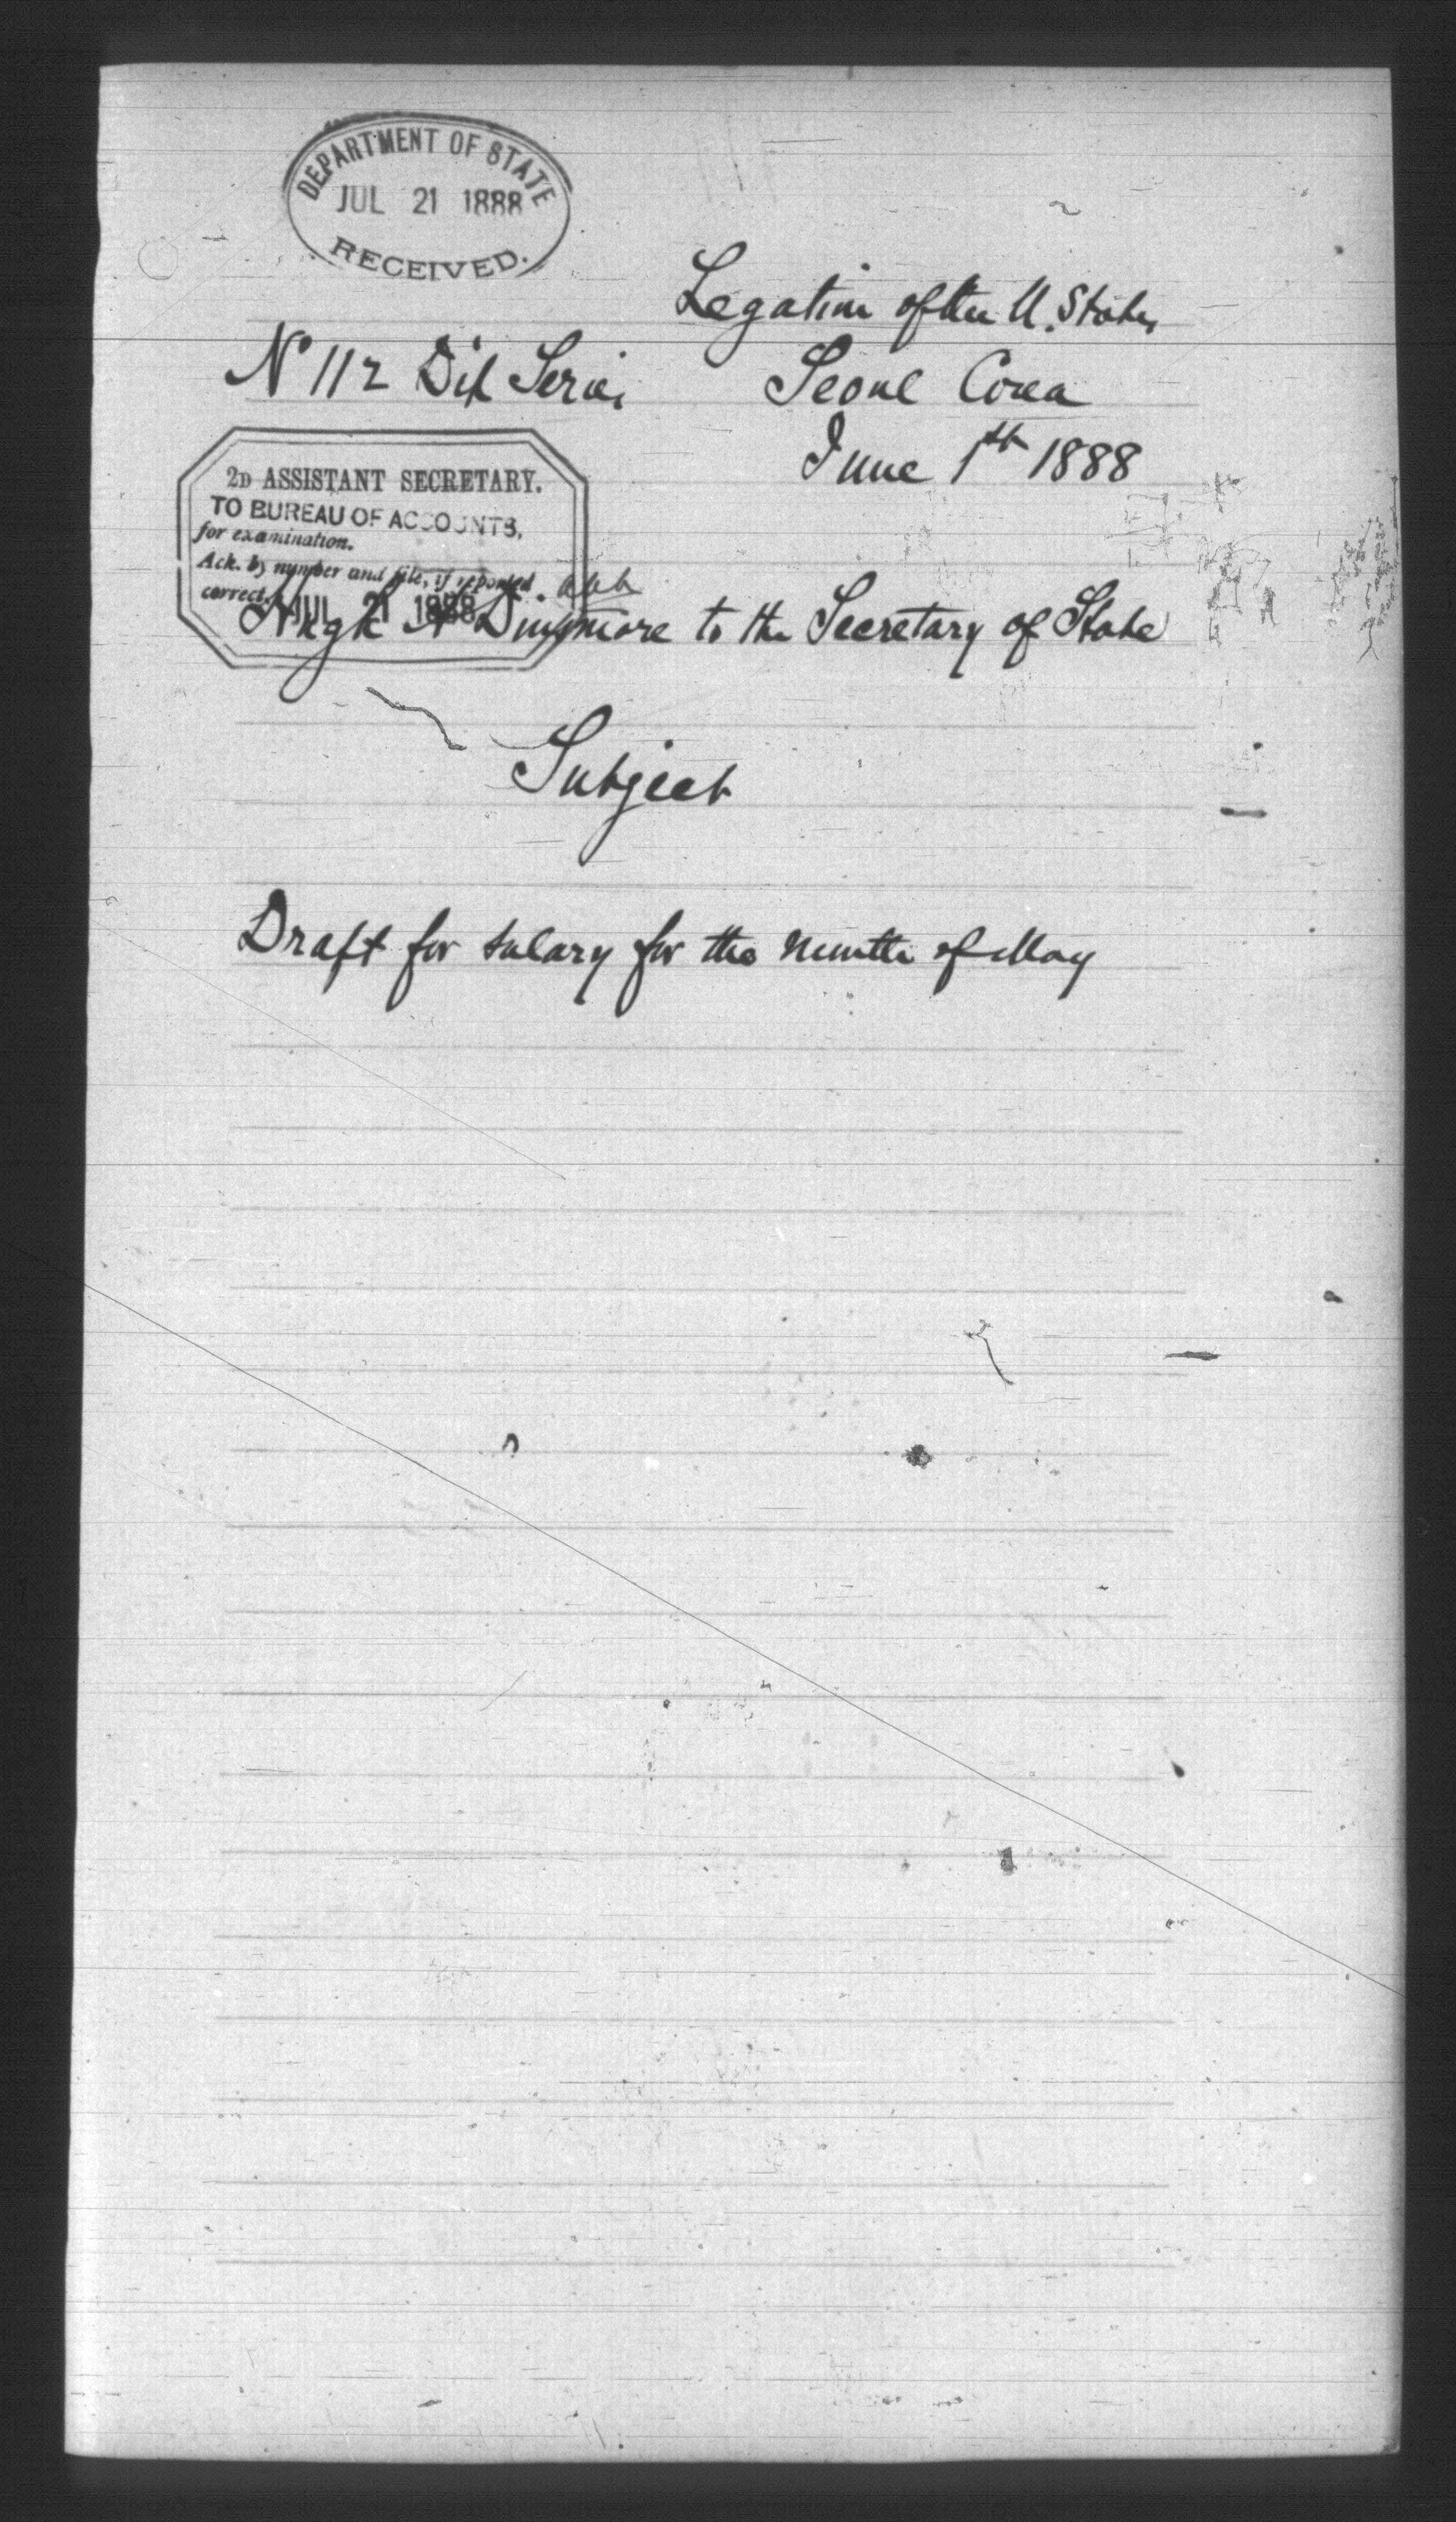 DEPARTMENT OF STATE
JUL 21 1888
RECEIVED.
Legation of the U. States
N 112 Dip Series
Seoul Corea
June 1st 1888
2D ASSISTANT SECRETARY.
TO BUREAU OF ACCOUNTS,
for examination.
Ack. by number and file, if reported
correct.
JUL 21 1888
Hugh A Dinsmore to the Secretary of State
Subject
Draft for salary for the month of May